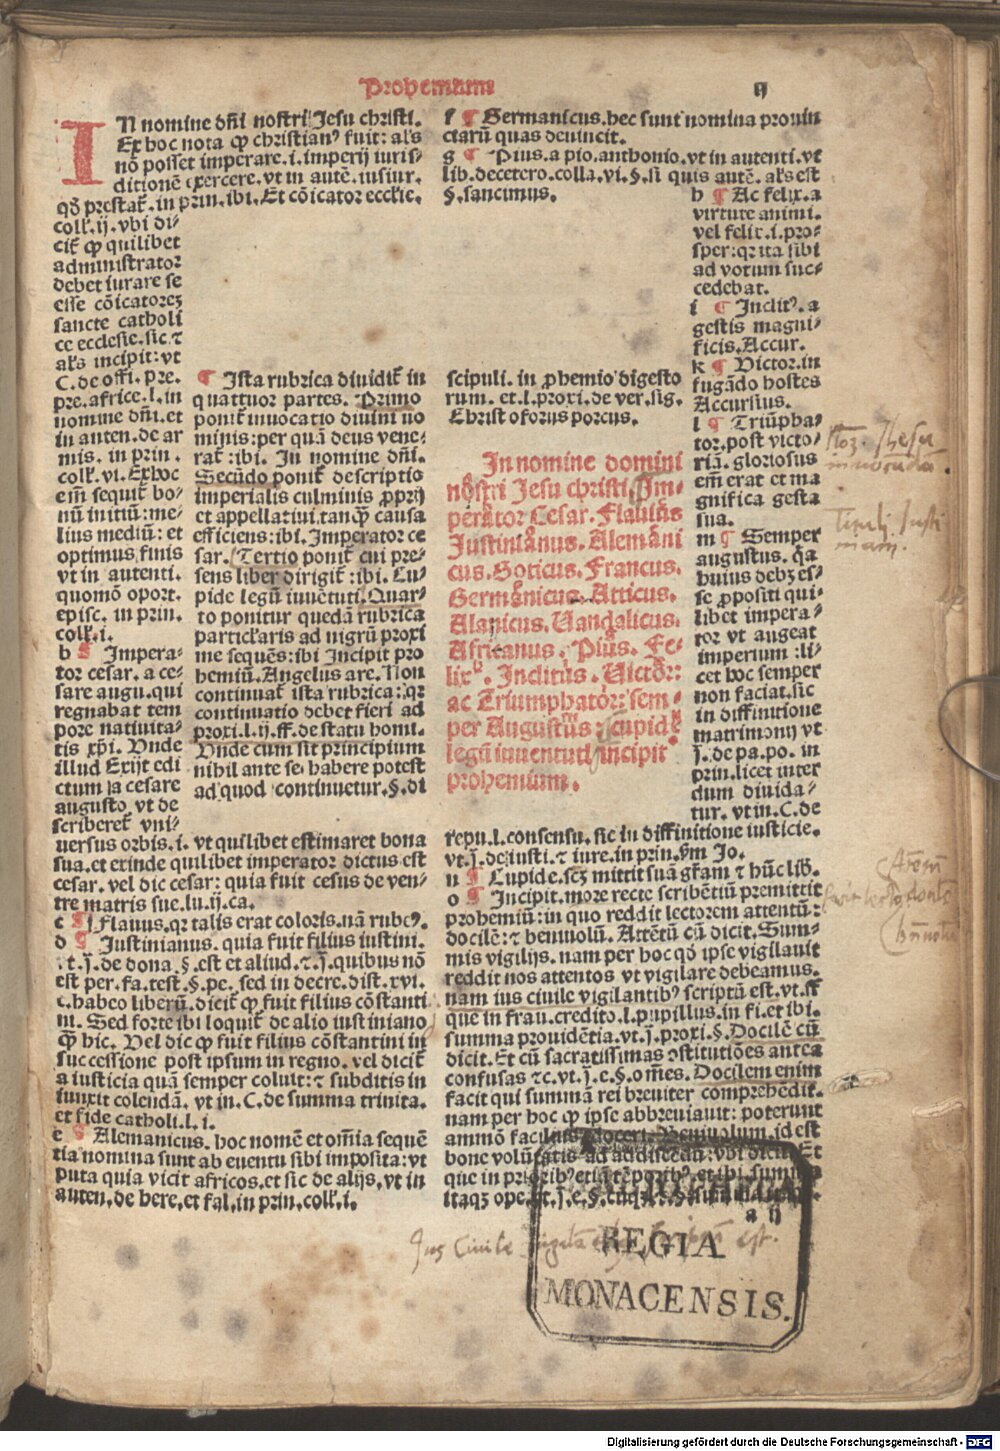 Prohemium
ij
IN nomine dñi nostri Jesu christi.
Ex hoc nota ꝙ christianꝰ fuit: als
nō posset imperare.i.imperij iuris⸗
ditionē exercere.vt in autē.iusiur.
qđ prestat᷑.in prin.ibi.Et cōicator ecclīe.
coll.ij.vbi di⸗
cit᷑ ꝙ quilibet
administrator
debet iurare se
esse cōicatorez
sancte catholi
ce ecclesie.sic ⁊
als incipit: vt
C.de offi. pre.
pre.africe.l.in
nomine dñi.et
in auten.de ar
mis. in prin.
coll. vi. Ex hoc
em̄ sequit᷑ bo⸗
nū initiū: me⸗
lius mediū: et
optimus finis
vt in autenti.
quomō oport.
episc. in prin.
coll.i.
b ¶ Impera⸗
tor cesar. a ce⸗
sare augu.qui
regnabat tem
pore natiuita⸗
tis xp̄i. Vnde
illud Exijt edi
ctum a cesare
augusto vt de
scriberet᷑ vni⸗
uersus orbis.i. vt quilibet estimaret bona
sua.et exinde quilibet imperator dictus est
cesar. vel dic cesar: quia fuit cesus de ven⸗
tre matris sue.lu.ij.ca.
c ¶ Flauus.qr talis erat coloris.nā rubeꝰ.
d ¶ Justinianus. quia fuit filius iustini.
.t.j.de dona.§.est et aliud.⁊.j.quibus nō
est per.fa.test.§.pe. sed in decre.dist.xvi.
c.habeo liberū.dicit᷑ ꝙ fuit filius cōstanti
ni. Sed forte ibi loquit᷑ de alio iustiniano
ꝙ hic. Vel dic ꝙ fuit filius cōstantini in
successione post ipsum in regno. vel dicit᷑
a iusticia quā semper coluit: ⁊ subditis in
iunxit colendā. vt in. C.de summa trinita.
et fide catholi.l.i.
e ¶ Alemanicus. hoc nomē et om̄ia sequē
tia nomina sunt ab euentu sibi imposita: vt
puta quia vicit africos.et sic de alijs.vt in
auten.de here.et fal.in prin.coll.i.
¶ Ista rubrica diuidit᷑ in
quattuor partes. Primo
ponit᷑ inuocatio diuini no
minis: per quā deus vene⸗
rat᷑: ibi. In nomine dñi.
Secūdo ponit᷑ descriptio
imperialis culminis ꝓprij
et appellatiui.tanꝙ causa
efficiens: ibi. Imperator ce
sar. Tertio ponit᷑ cui pre⸗
sens liber dirigit᷑: ibi. Cu⸗
pide legū iuuētuti. Quar⸗
to ponitur quedā rubrica
particlaris ad nigrū proxi
me sequēs: ibi Incipit pro
hemiū. Angelus are. Non
continuat᷑ ista rubrica: qr
continuatio debet fieri ad
proxi.l.ij.ff.de statu homi.
Vnde cum sit principium
nihil ante se habere potest
ad quod continuetur.§.di
f ¶ Germanicus.hec sunt nomina prouin
ciarū quas deuincit.
g ¶ Pius.a pio.anthonio.vt in autenti.vt
lib.decetero.colla.vi.§.si quis autē. als est
§.sancimus.
h ¶ Ac felix.a
virtute animi.
vel felix.i.pro⸗
sper: qr ita sibi
ad votum suc⸗
cedebat.
i ¶ Inclitꝰ.a
gestis magni⸗
ficis.Accur.
k ¶ Victor.in
fugādo hostes
Accursius.
l ¶ Triūpha⸗
tor.post victo⸗
riā. gloriosus
em̄ erat et ma
gnifica gesta
sua.
m ¶ Semper
augustus. qa
huius debz es⸗
se ꝓpositi qui⸗
libet impera⸗
tor vt augeat
imperium: li⸗
cet hoc semper
non faciat.sic
in diffinitione
matrimonij vt
j.de pa.po. in
prin.licet inter
dum diuida⸗
tur. vt in.C.de
repu.l.consensu. sic in diffinitione iusticie.
vt.j.de iusti.⁊ iure.in prin.ẜm Jo.
n ¶ Cupide.scz mittit suā gr̄am ⁊ hūc lib.
o ¶ Incipit.more recte scribētiū premittit
prohemiū: in quo reddit lectorem attentū:
docilē: ⁊ beniuolū. Attētū cū dicit. Sum⸗
mis vigilijs. nam per hoc qđ ipse vigilauit
reddit nos attentos vt vigilare debeamus.
nam ius ciuile vigilantibꝰ scriptū est.vt.ff
que in frau.credito.l.pupillus.in fi.et ibi.
summa prouidētia.vt.j.proxi.§. Docilē cū
dicit. Et cū sacratissimas ꝯstitutiōes antea
confusas ⁊c.vt.j.e.§.om̄es. Docilem enim
facit qui summā rei breuiter comprehēdit.
nam per hoc ꝙ ipse abbreuiauit: poterunt
ammō facilius doceri. Beniuolum.id est
bone volūtatis ad addiscēdū: vbi dicit. Et
itaqz ope
scipuli. in ꝓhemio digesto
rum. et.l.proxi.de ver.sig.
Christoforus porcus.
In nomine domini
nostri Jesu christi. Im⸗
perator Cesar. Flauius
Justinianus. Alemani
cus. Goticus. Francus.
Germanicus. Atticus.
Alanicus. Vandalicus.
Africanus. Pius. Fe⸗
lix. Inclitus. Victor:
ac Triumphator: sem⸗
per Augustus: cupide
legū iuuentuti incipit
prohemium.
a ij
REGIA
MONACENSIS.
Digitalisierung gefördert durch die Deutsche Forschungsgemeinschaft - DFG